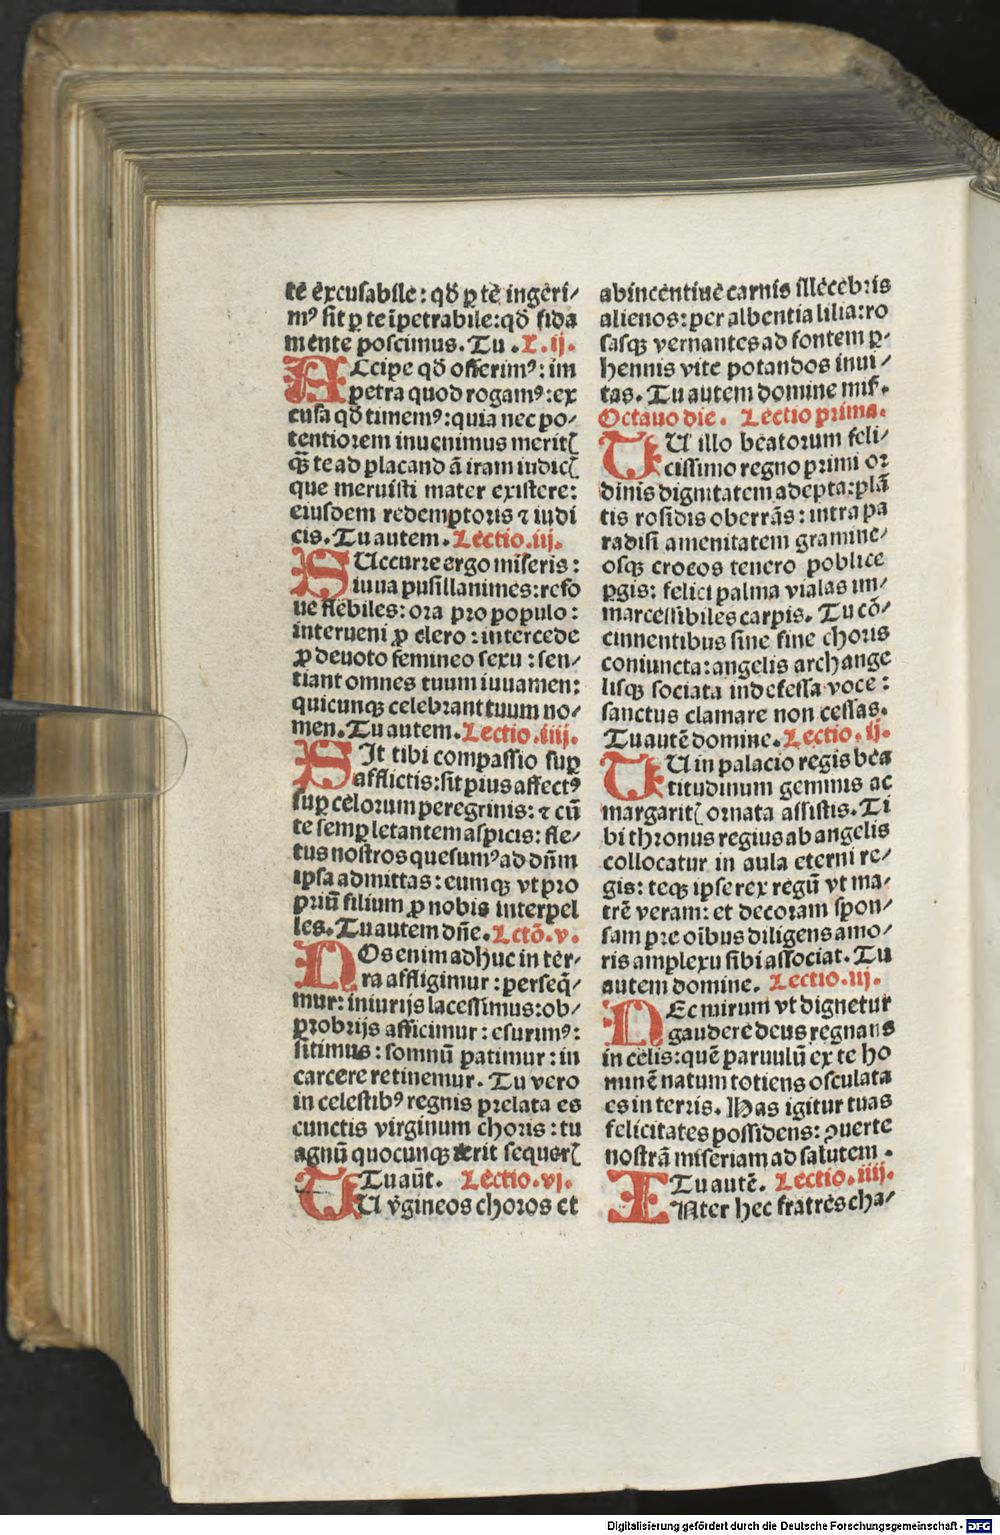 tē excusabile: qđ ꝑ tē ingeri/
mꝰ sit ꝑ te īpetrabile: qđ fida
mente poscimus. Tu . L.ij.
ACcipe qđ offerimꝰ: im
petra quod rogamꝰ: ex
cusa qđ timemꝰ: quia nec po-
tentiorem inuenimus meritꝭ
qꝫ te ad placand ā iram iudicꝭ
que meruisti mater existere:
eiusdem redemptoris ⁊ iudi
cis. Tu autem. Lectio .iij.
SUccurre ergo miseris:
iuua pusillanimes: refo
ue flebiles: ora pro populo:
interueni ꝓ clero: intercede
ꝓ deuoto femineo sexu: sen/
tiant omnes tuum iuuamen:
quicunqꝫ celebrant tuum no/
men. Tu autem. Lectio .iiij.
SIt tibi compassio suꝑ
afflictis: sit pius affectꝰ
suꝑ celorum peregrinis: ⁊ cū
te semꝑ letantem aspicis: fle/
tus nostros quesumꝰ ad dn̄m
ipsa admittas: eumqꝫ vt pro
priū filium ꝓ nobis interpel
les. Tu autem dn̄e. Lctō. v.
NOs enim adhuc in ter-
ra affligimur: perseq̄-
mur: iniurijs lacessimus: ob/
probrijs afficimur: esurimꝰ:
sitimus: somnū patimur: in
carcere retinemur. Tu vero
in celestibꝰ regnis prelata es
cunctis virginum choris: tu
agnū quocunqꝫ ierit sequerꝭ
Tu aūt. Lectio .vj.
TU v̄gineos choros et
ab incentiue carnis illecebris
alienos: per albentia lilia: ro
sasqꝫ vernantes ad fontem ꝑ-
hennis vite potandos inui/
tas. Tu autem domine mis.
Octauo die. Lectio prima.
TU illo beatorum feli/
cissimo regno primi or
dinis dignitatem adepta: plā
tis rosidis oberrās: intra pa
radisi amenitatem gramine/
osqꝫ croeos tenero poblice
ꝑgis: felici palma violas im/
marcessibiles carpis. Tu cō/
cinnentibus sine fine choris
coniuncta: angelis archange
lisqꝫ sociata indefessa voce:
sanctus clamare non cessas.
Tu autē domine. Lectio .ij.
TU in palacio regis bea
titudinum gemmis ac
margaritꝭ ornata assistis. Ti
bi thronus regius ab angelis
collocatur in aula eterni re/
gis: teqꝫ ipse rex regū vt ma-
trē veram: et decoram spon/
sam pre oībus diligens amo/
ris amplexu sibi associat. Tu
autem domine. Lectio .iij.
NEc mirum vt dignetur
gaudere deus regnans
in celis: quē paruulū ex te ho
minē natum totiens osculata
es in terris. Has igitur tuas
felicitates possidens: ꝯuerte
nostrā miseriam ad salutem .
Tu autē. Lectio .iiij.
INter hec fratres cha/
Digitalisierung gefördert durch die Deutsche Forschungsgemeinschaft - DFG